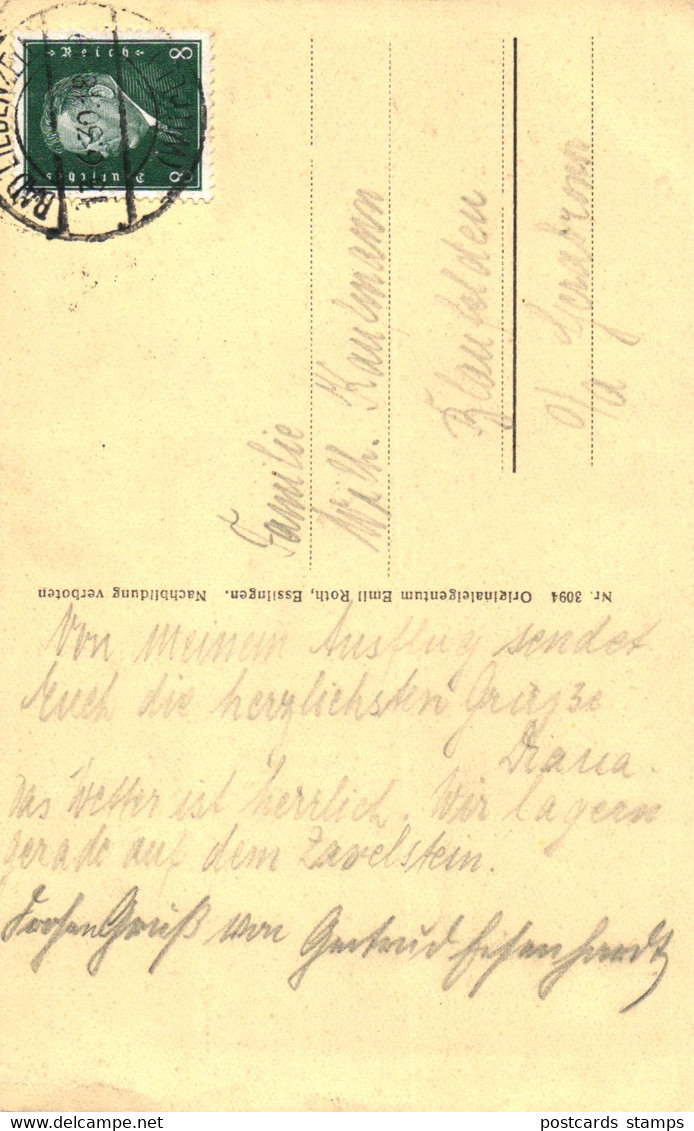 8 Reich
Deutsches 8
BAD LIEBENZELL
Familie
Wilh. Kaufmann
Blaufelden
O/A Gerabronn
Nr. 3094 Originaleigentum Emil Roth, Esslingen. Nachbildung verboten
Von meinem Ausflug sendet
Euch die herzlichsten Grüße
Das Wetter ist herrlich. Wir lagern
gerade auf dem Zavelstein.
Frohen Gruß von Gertrud Eisenhardt
postcards stamps